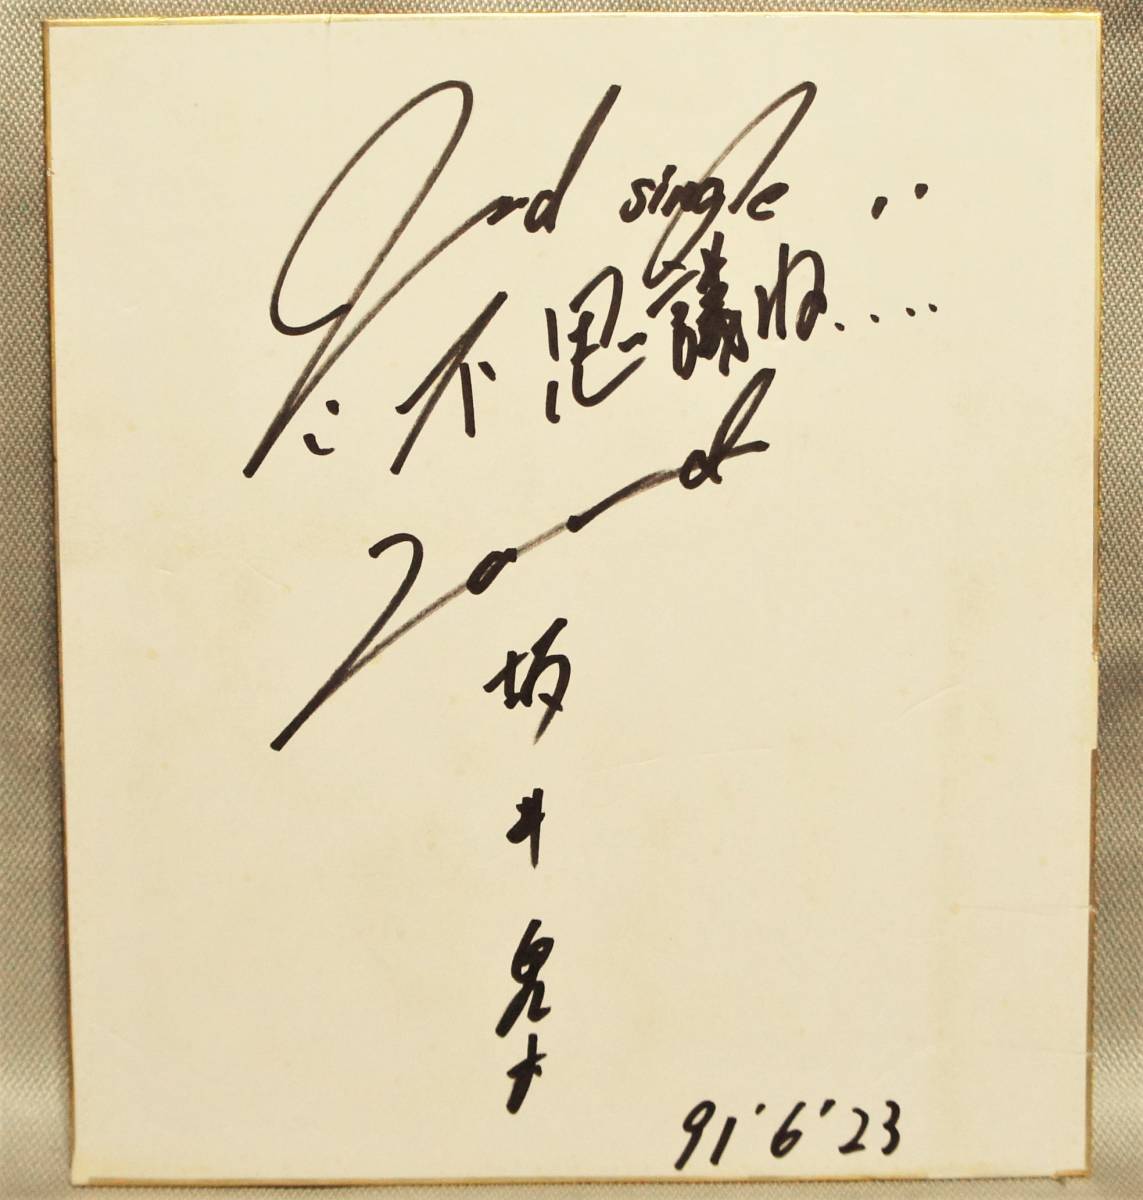 2nd single ‥
不思議ね....
Zard
坂井泉水
91'6'23